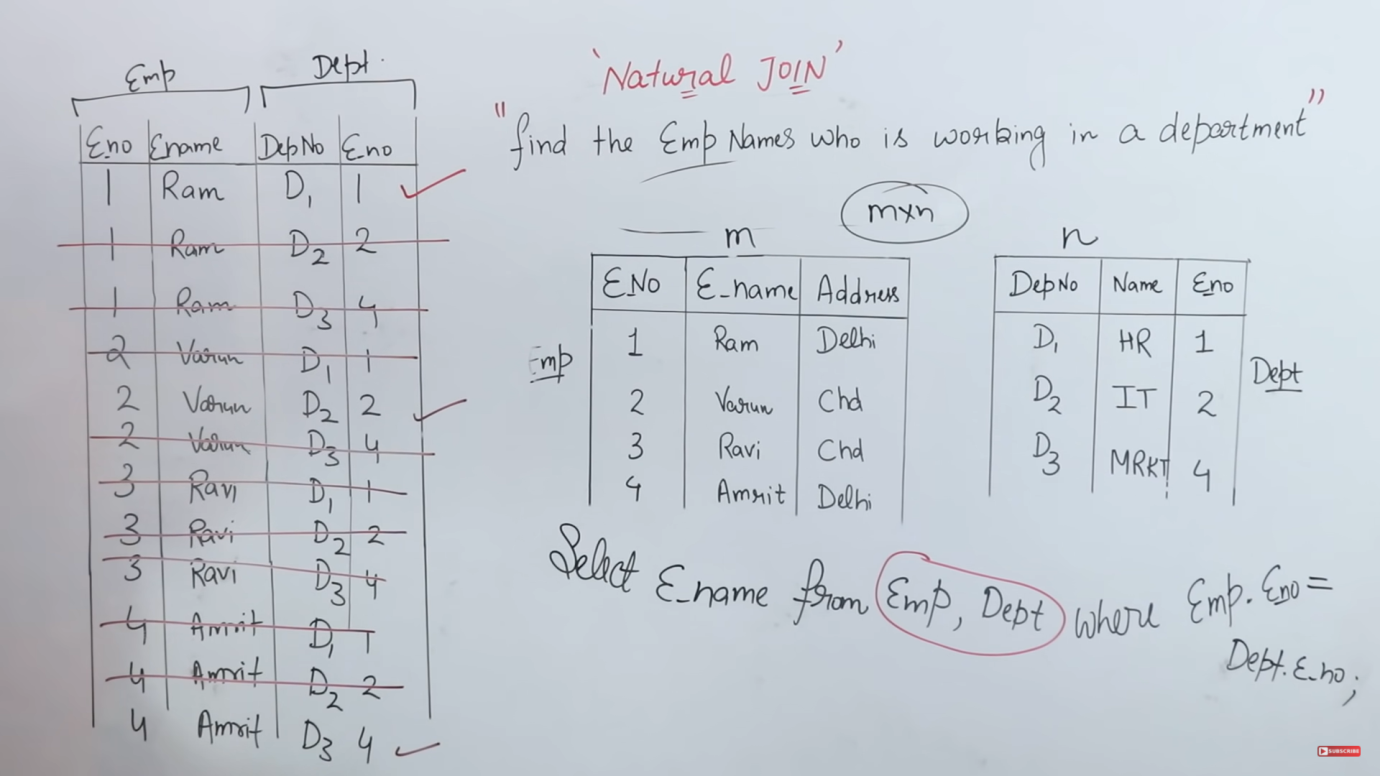 Emp Dept.
Eno Ename DepNo Eno
1 Ram D1 1
1 Ram D2 2
1 Ram D3 4
2 Varun D1 1
2 Varun D2 2
2 Varun D3 4
3 Ravi D1 1
3 Ravi D2 2
3 Ravi D3 4
4 Amrit D1 1
4 Amrit D2 2
4 Amrit D3 4
'Natural JOIN'
"find the Emp Names who is working in a department"
m×n
m
E.No E_name Address
1 Ram Delhi
2 Varun Chd
3 Ravi Chd
4 Amrit Delhi
Emp
n
DepNo Name Eno
D1 HR 1
D2 IT 2
D3 MRKT 4
Dept
Select E_name from Emp, Dept where Emp.Eno =
Dept.E_no;
SUBSCRIBE